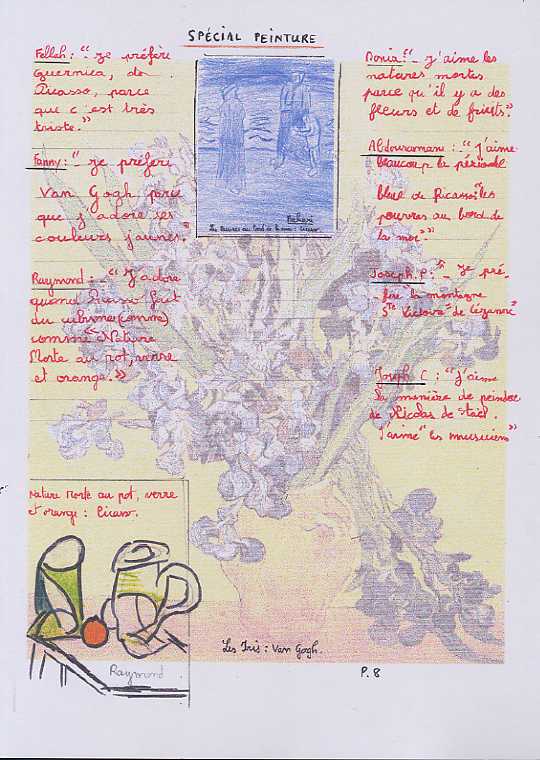 SPÉCIAL PEINTURE
Fellah : "Je préfère
Guernica, de
Picasso, parce
que c'est très
triste."
Fanny : "Je préfère
Van Gogh parce
que j'adore ses
couleurs jaunes."
Raymond : - "J'adore
quand Picasso fait
du cubisme (comme)
comme "Nature
Morte au pot, verre
et orange."
Les pauvres au bord de la mer : Picasso.
Sonia : "- J'aime les
natures mortes
parce qu'il y a des
fleurs et de fruits."
Abdouramane : "J'aime
beaucoup la période
bleue de Picasso "les
pauvres au bord de
la mer."
Joseph P : "- Je pré-
fère la montagne
Ste Victoire" de Cézanne"
Joseph C : "J'aime
la manière de peindre
de Nicolas de Staël.
J'aime "les musiciens"
Nature Morte au pot, verre
et orange : Picasso.
Raymond
Les Iris : Van Gogh.
P.8